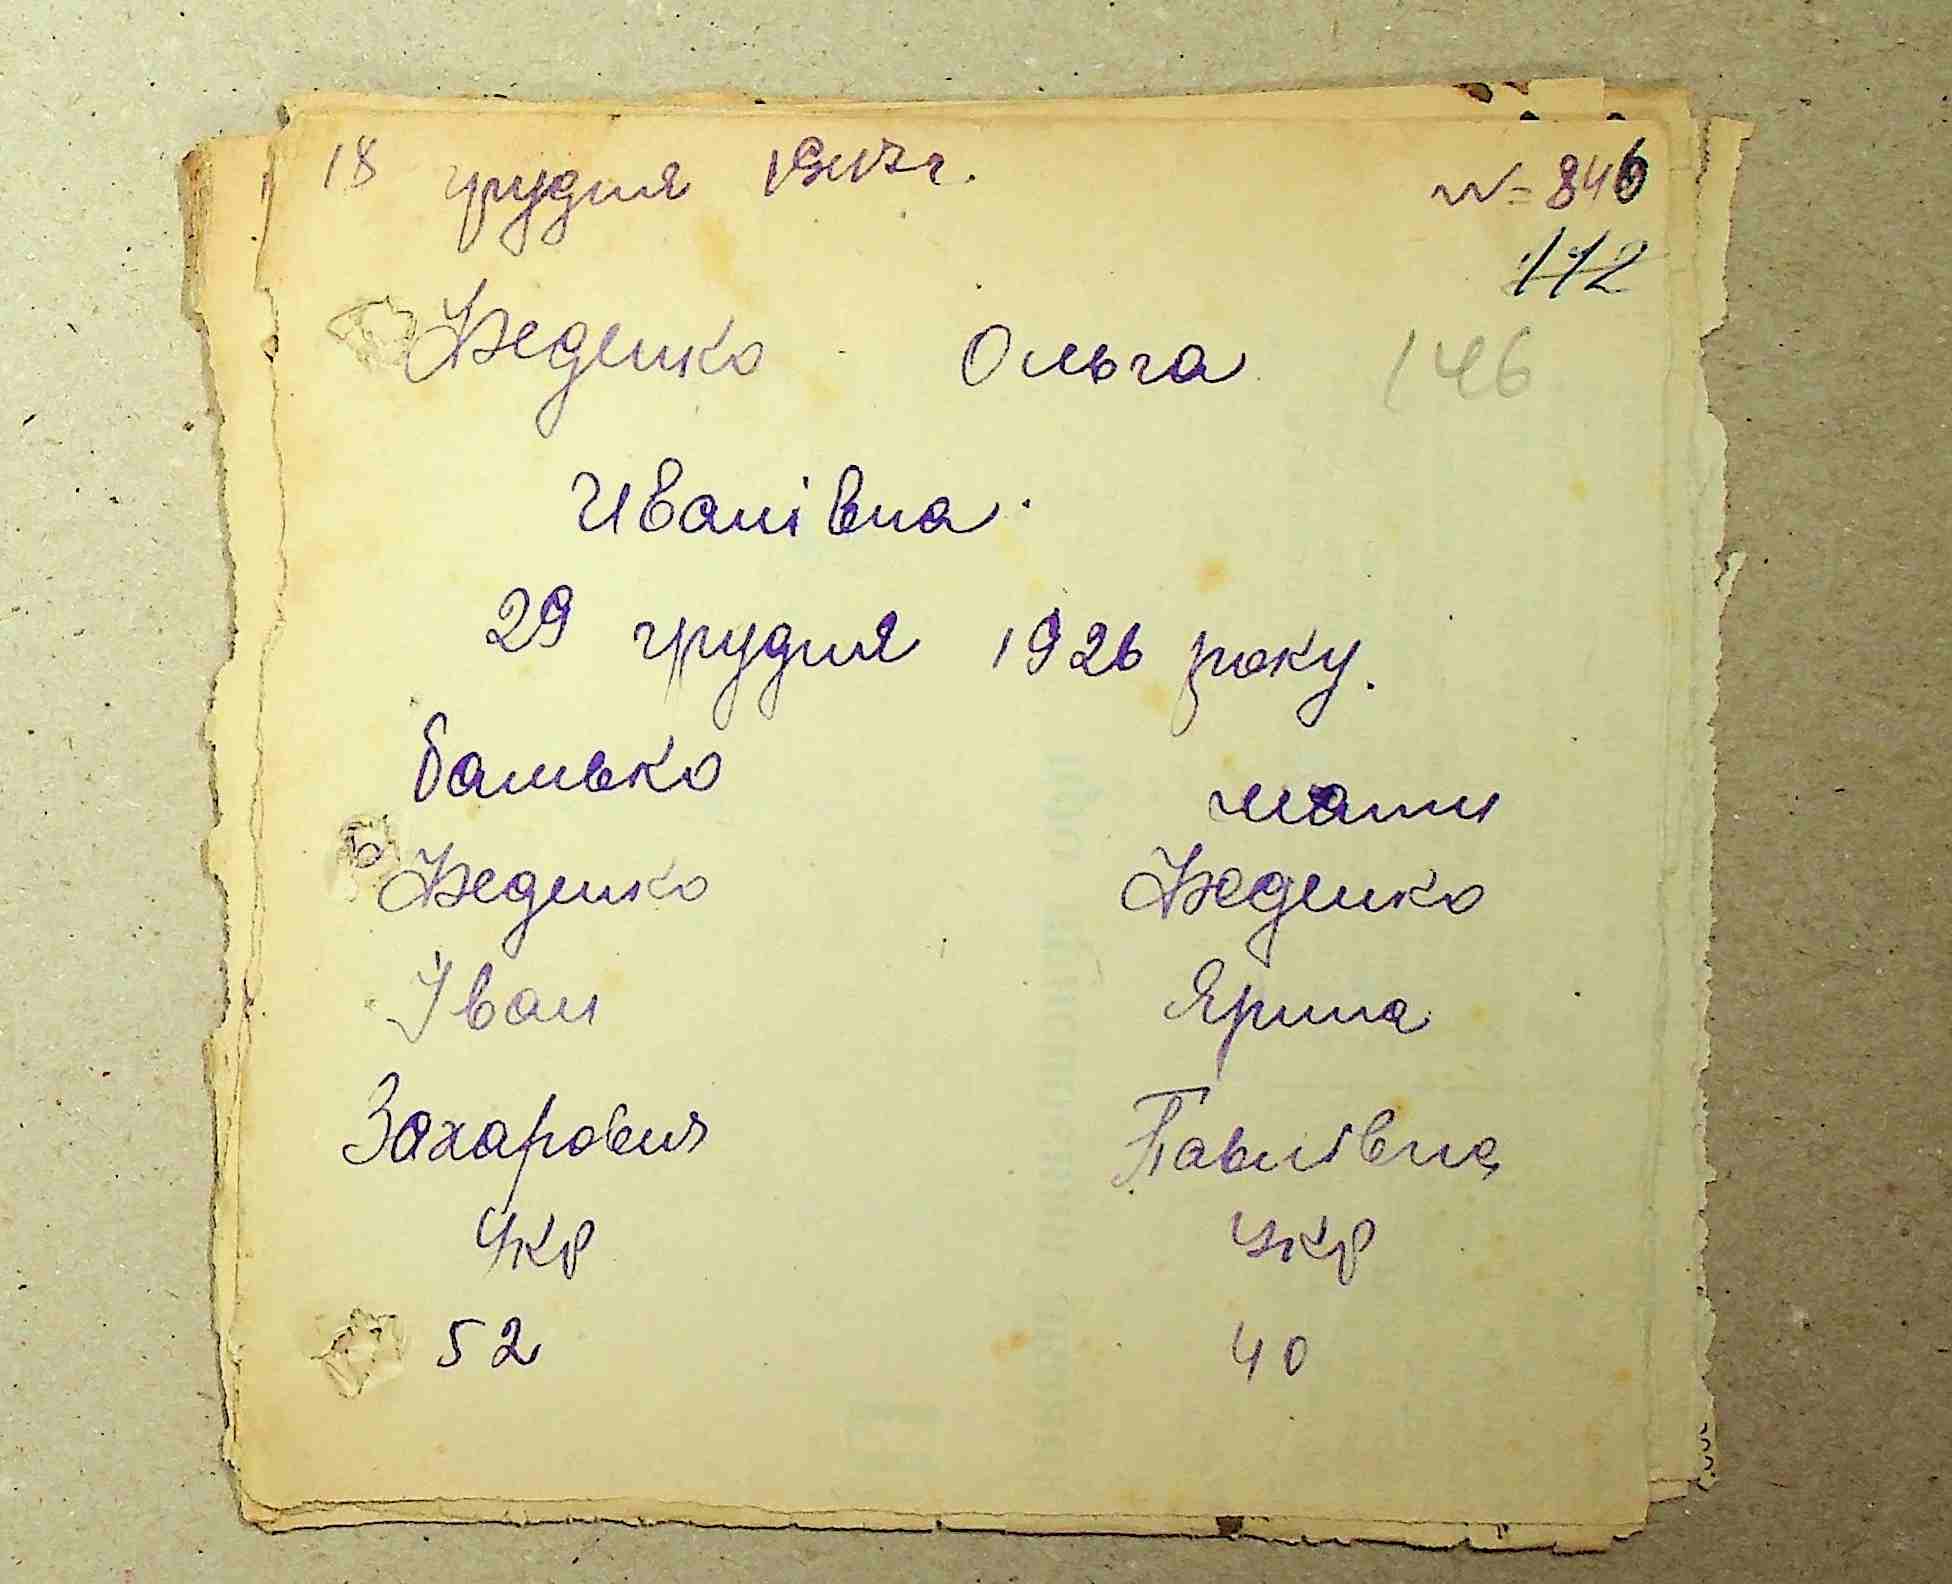 18 грудня 1947г.
№ 846
112
Жеденко Ольга 146
Иванівна.
29 грудня 1926 року.
батько мати
Жеденко Жеденко
Іван Ярина
Захарович Павлівна
Укр Укр
52 40